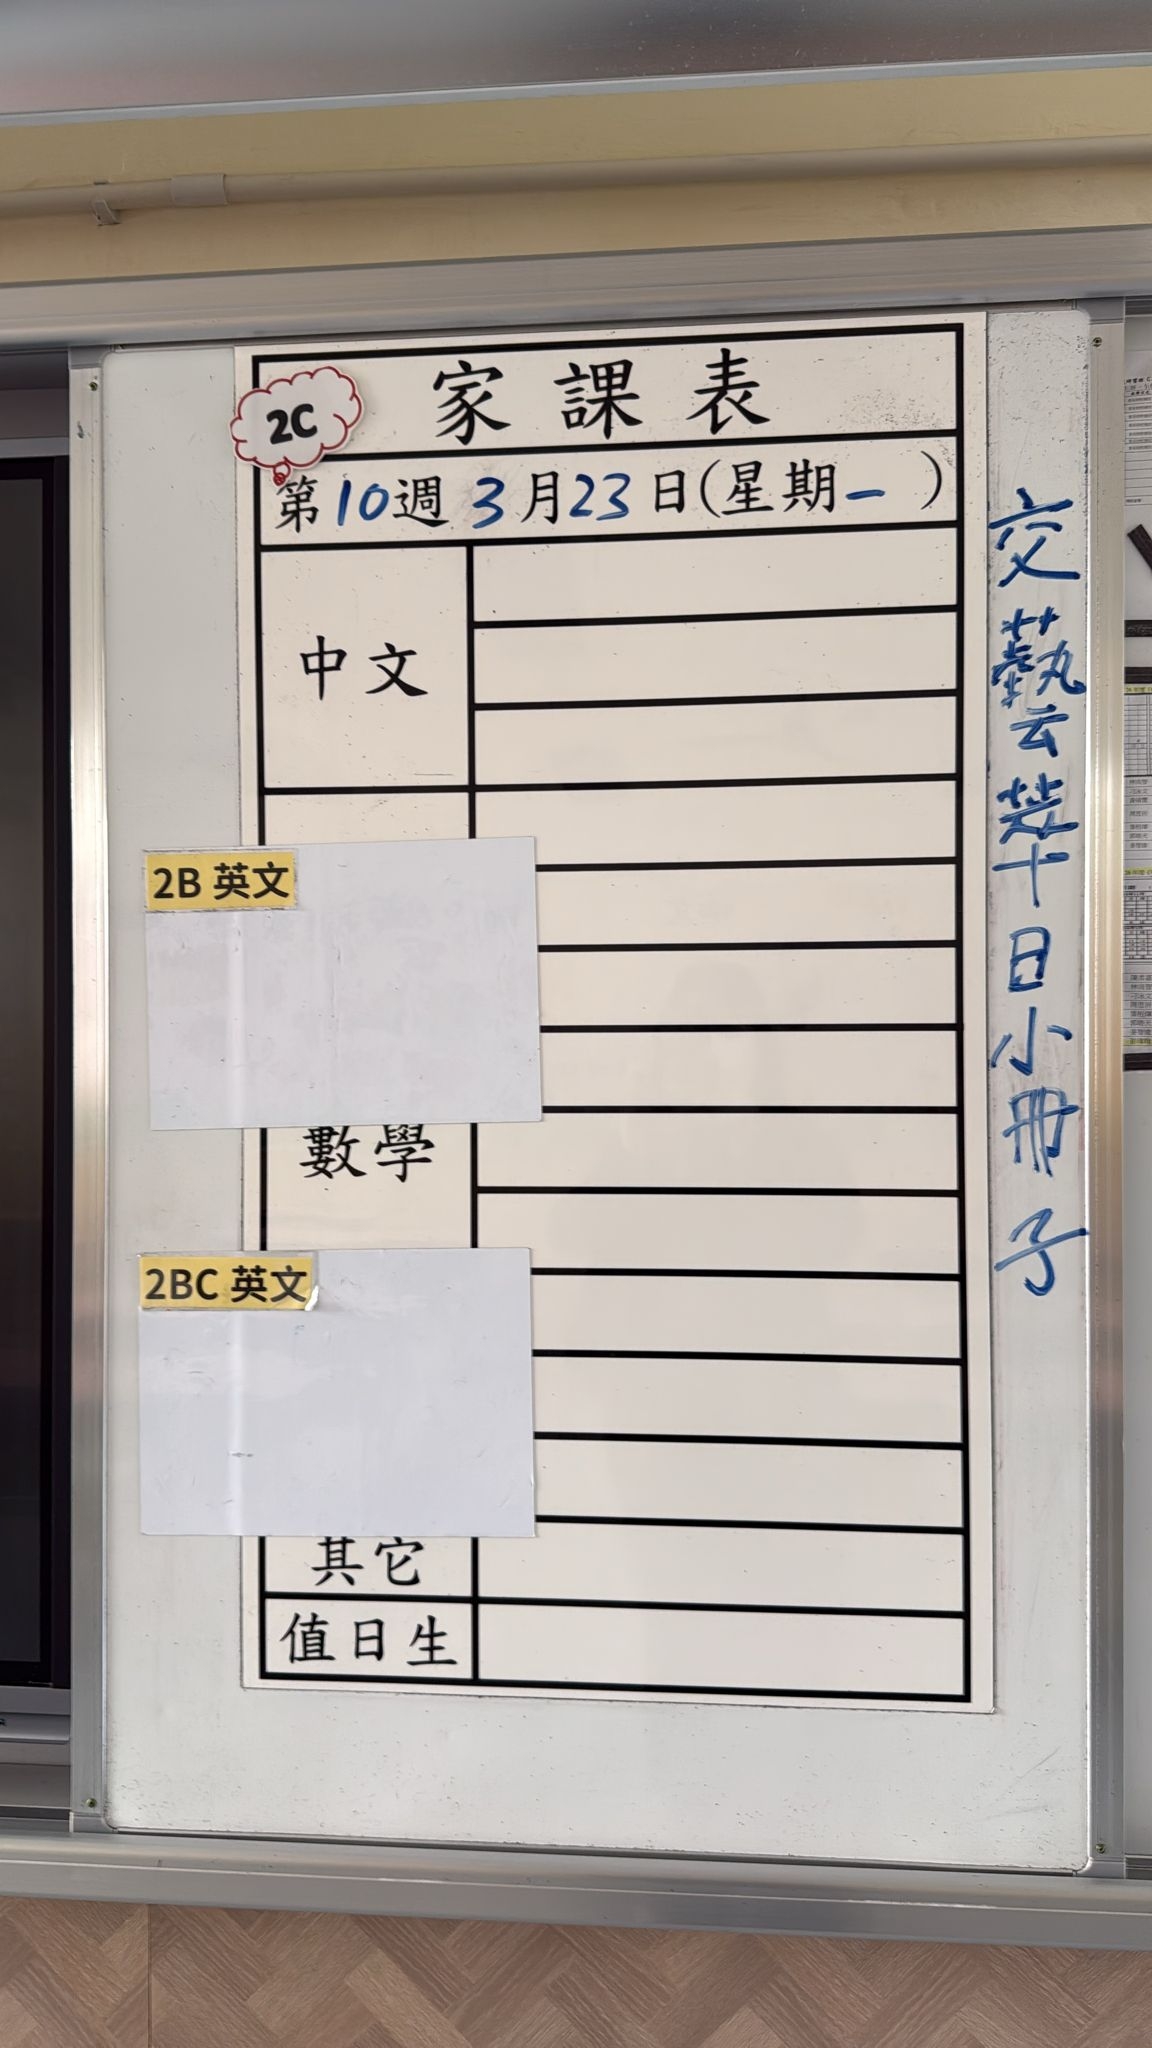 家課表
2C
第10週 3月23日(星期一 )
中文
2B 英文
數學
2BC 英文
其它
值日生
交藝萃十日小冊子